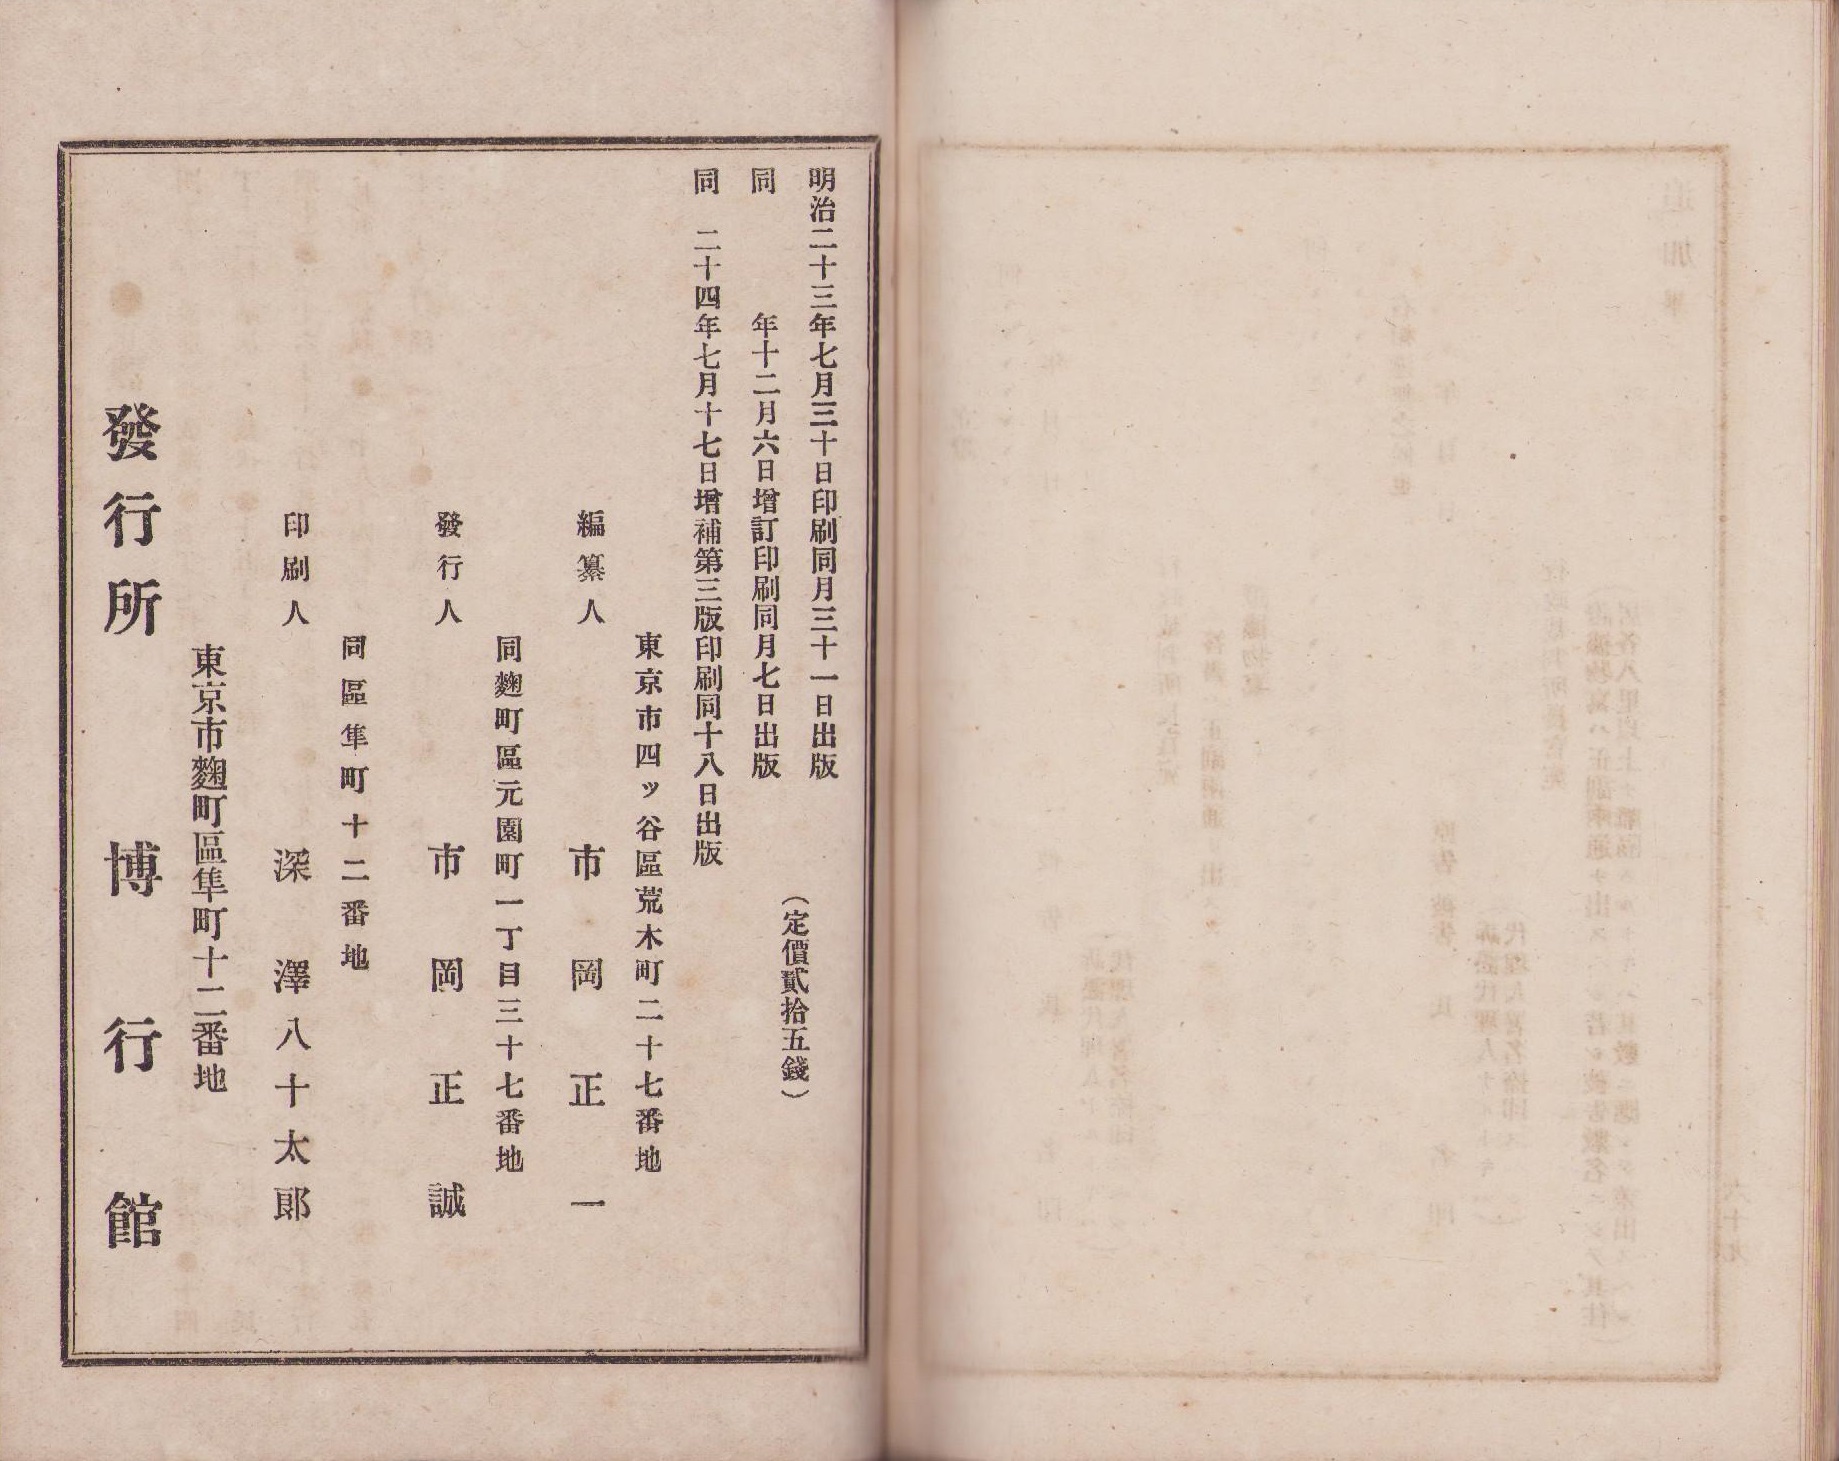 明治二十三年七月三十日印刷同月三十一日出版
同年十二月六日增訂印刷同月七日出版
同二十四年七月十七日增補第三版印刷同十八日出版
(定價貳拾五錢)
東京市四ッ谷區荒木町二十七番地
編纂人 市岡正一
同麴町區元園町一丁目三十七番地
發行人 市岡正誠
同區隼町十二番地
印刷人 深澤八十太郎
東京市麴町區隼町十二番地
發行所 博行館